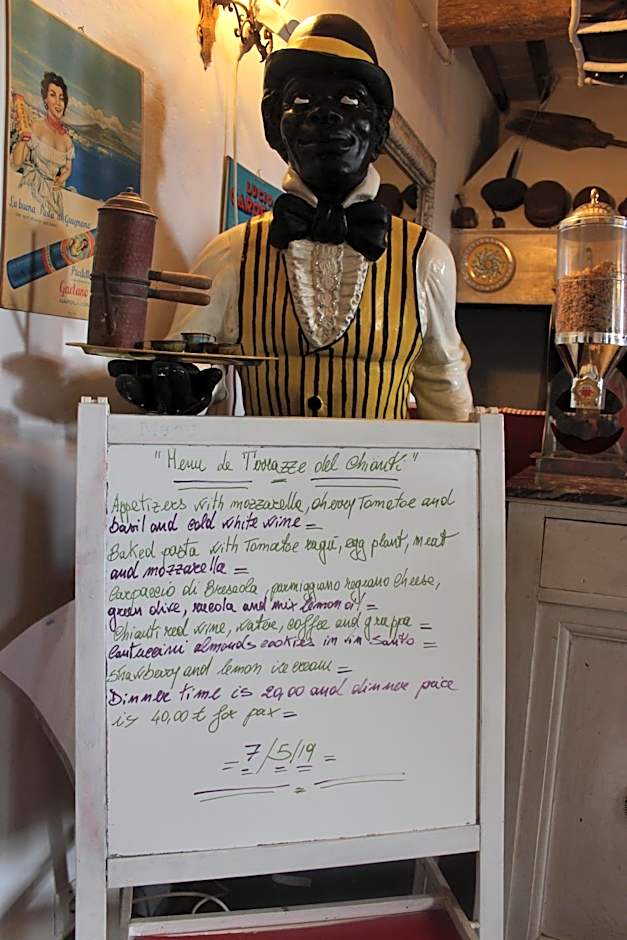 La buona Pasta di Gragnano
Gaetano
"Menu de Terrazze del Chianti"
Appetizers with mozzarella, cherry Tomatoe and
basil and cold white wine =
Baked pasta with Tomatoe ragù, egg plant, meat
and mozzarella =
Carpaccio di Bresaola, parmiggiano regiano cheese,
green olive, rucola and mix lemon oil =
Chianti red wine, water, coffee and grappa =
Cantuccini almonds cookies in vin Santo =
Strawberry and lemon ice cream =
Dinner time is 20,00 and dinner price
is 40,00 € for pax =
= 7/5/19 =